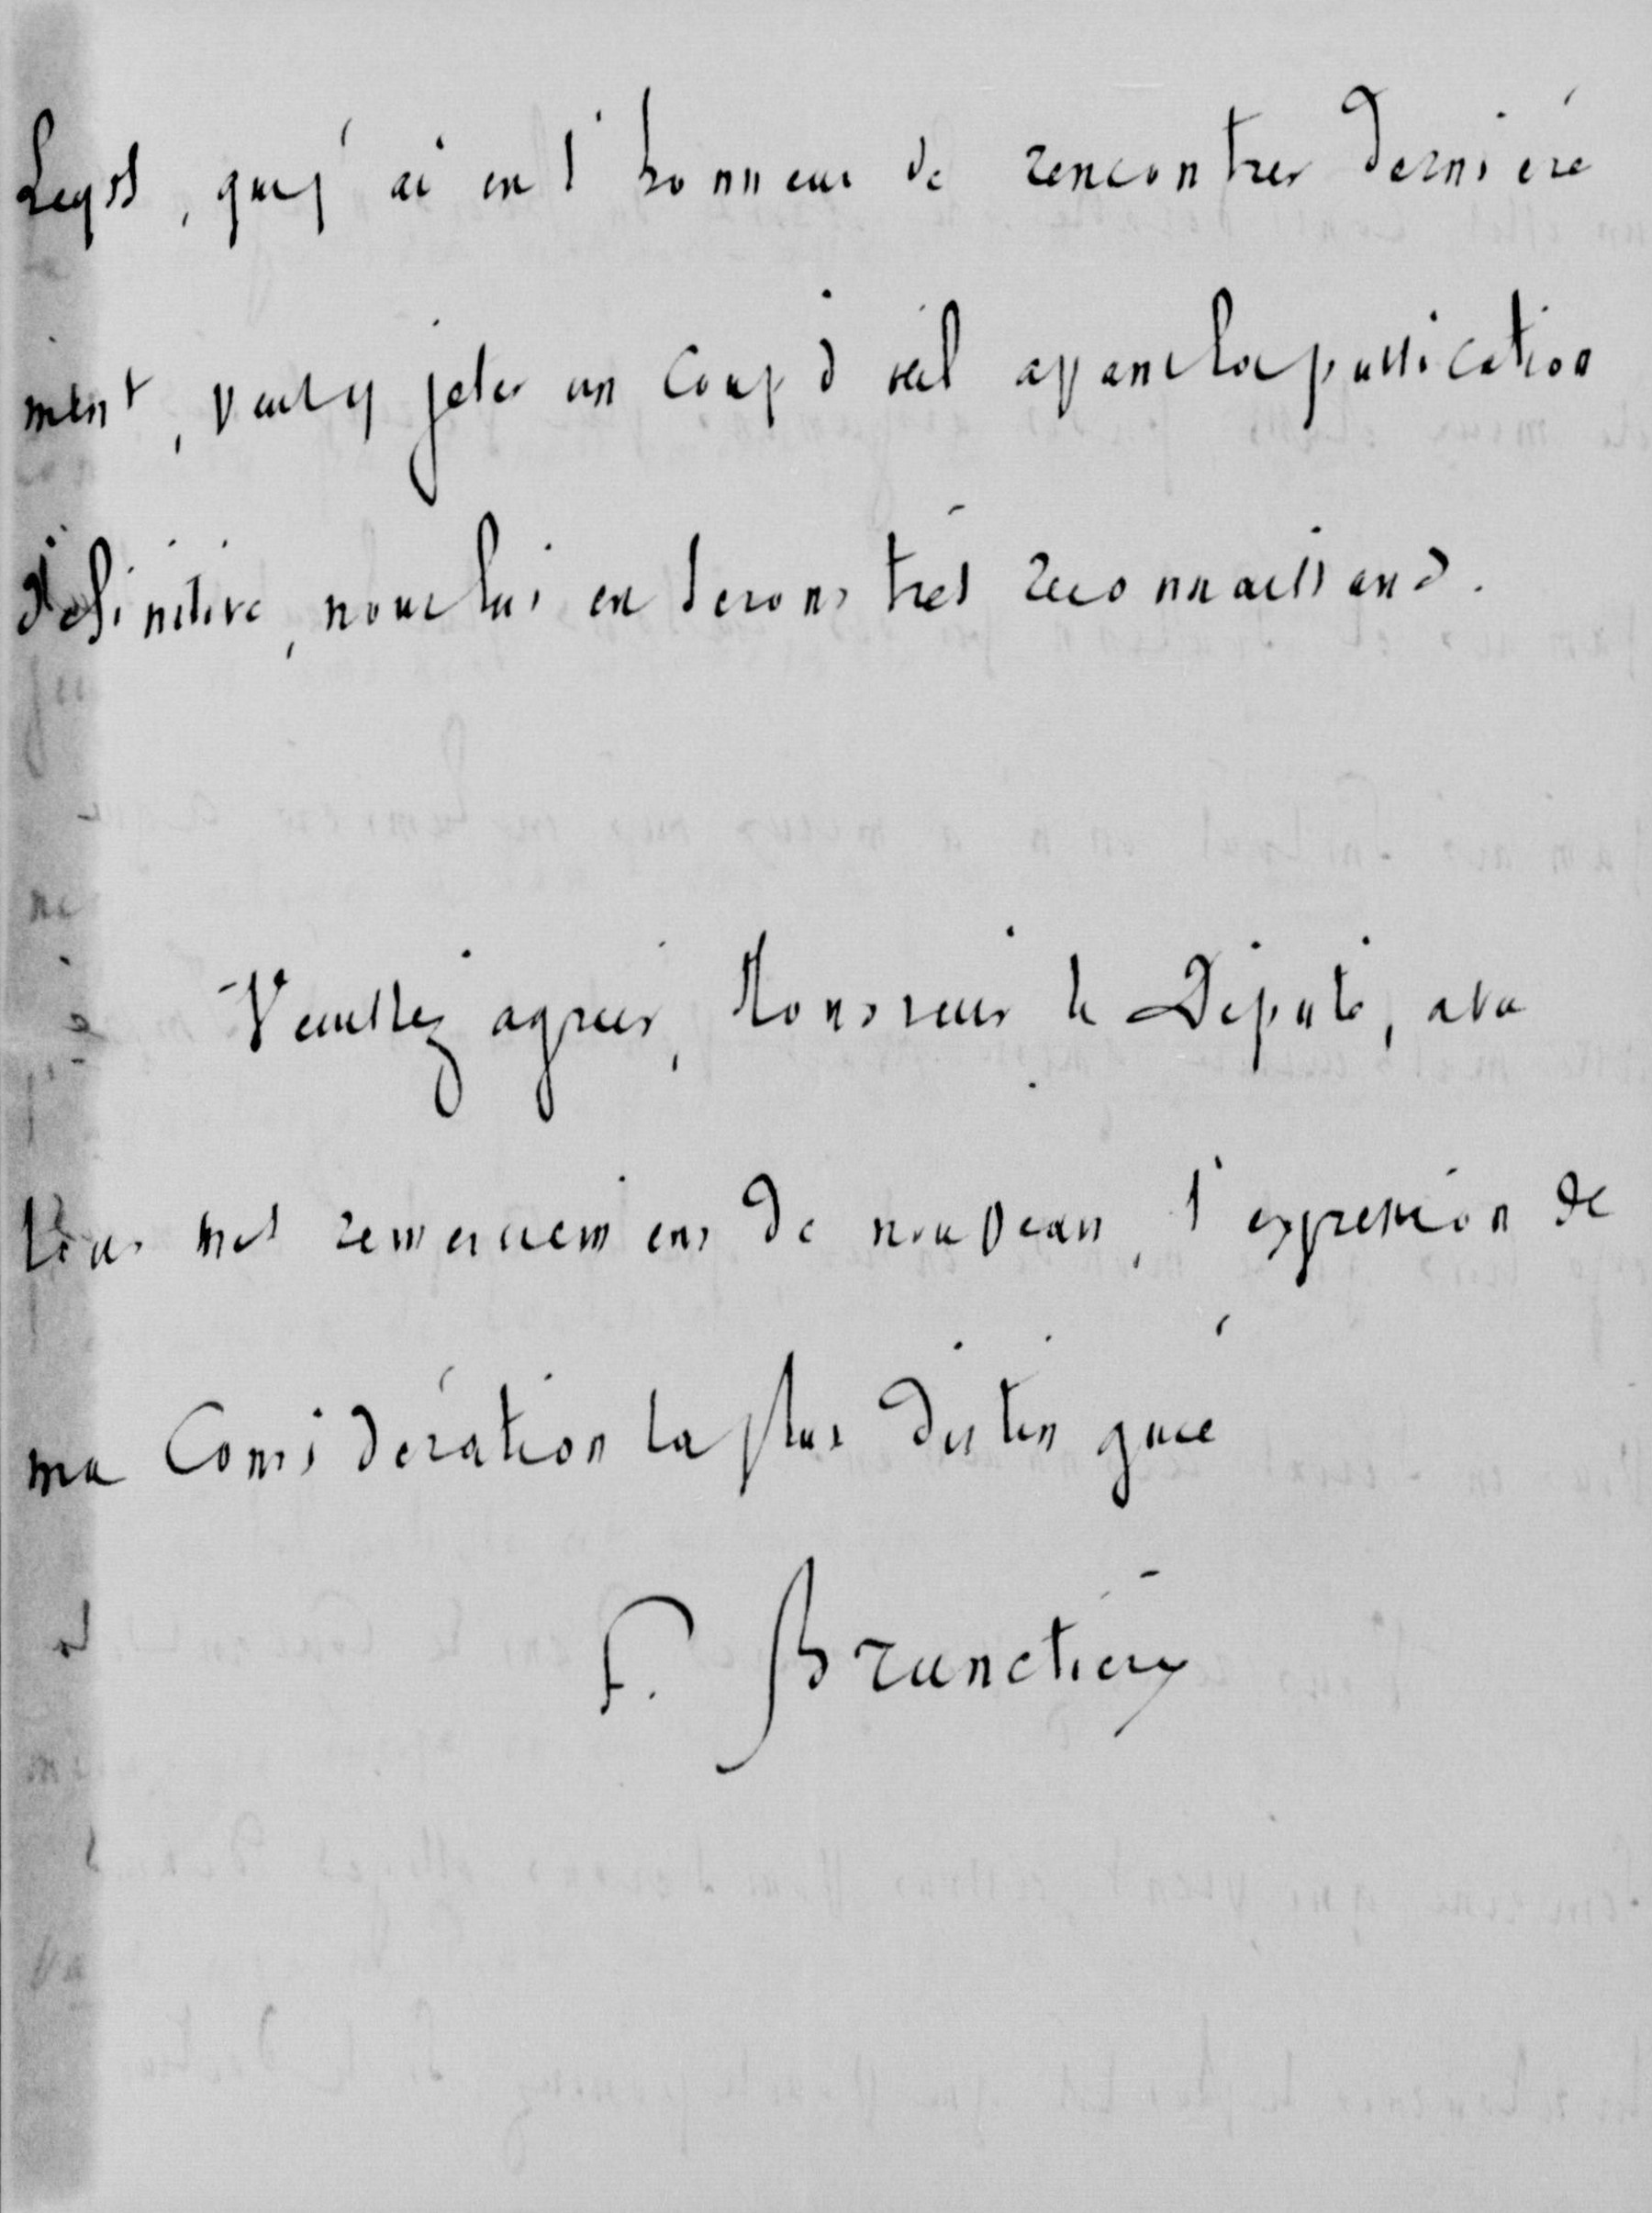 Leyds, que j'ai eu l'honneur de rencontrer dernière
ment, veut y jeter un coup d'œil avant la publication
définitive, nous lui en serons très reconnaissans.
Veuillez agréer, Monsieur le Député, avec
tous mes remerciemens de nouveau, l'expression de
ma Considération la plus distinguée
F. Brunetière